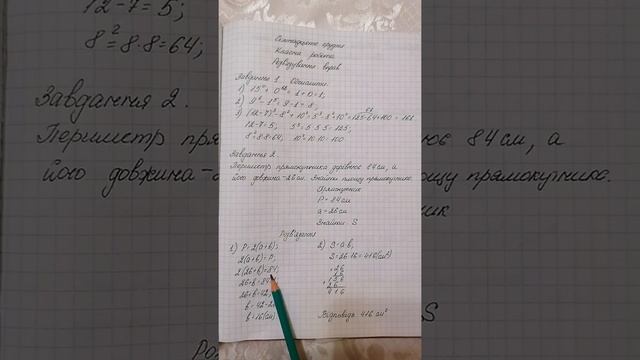 12-7=5;
8²=8·8=64;
Завдання 2.
Периметр
84 см, а
його довжина-
прямокутника.
Сімнадцяте грудня
Класна робота
Розв'язування вправ
Завдання 1. Обчислити.
2) 9² - 1⁵
12-7=5, 5³=5·5·5=125,
8²=8·8=64, 10²=10·10=100
Завдання 2.
Периметр прямокутника дорівнює 84 см, а
його довжина-26 см. Знайти площу прямокутника.
Прямокутник
P = 84 см
a = 26 см
Знайти S
Розв'язання
1) P=2(a+b);
2(a+b)=P,
2(26+b)=84,
26+b=84
26+b=42,
b=42-2
b=16(см)
2) S=a·b,
S=26·16=416(см²)
26
16
156
26
416
Відповідь 416 см²